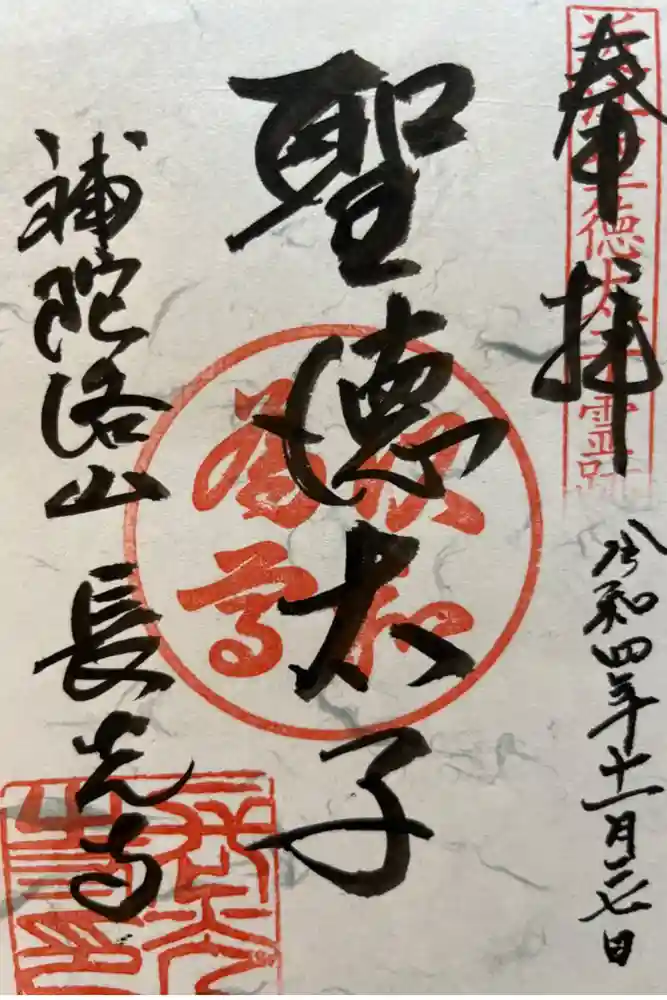 奉拝
聖徳太子霊跡
令和四年十一月二七日
聖徳太子
以和
為貴
補陀洛山 長光寺